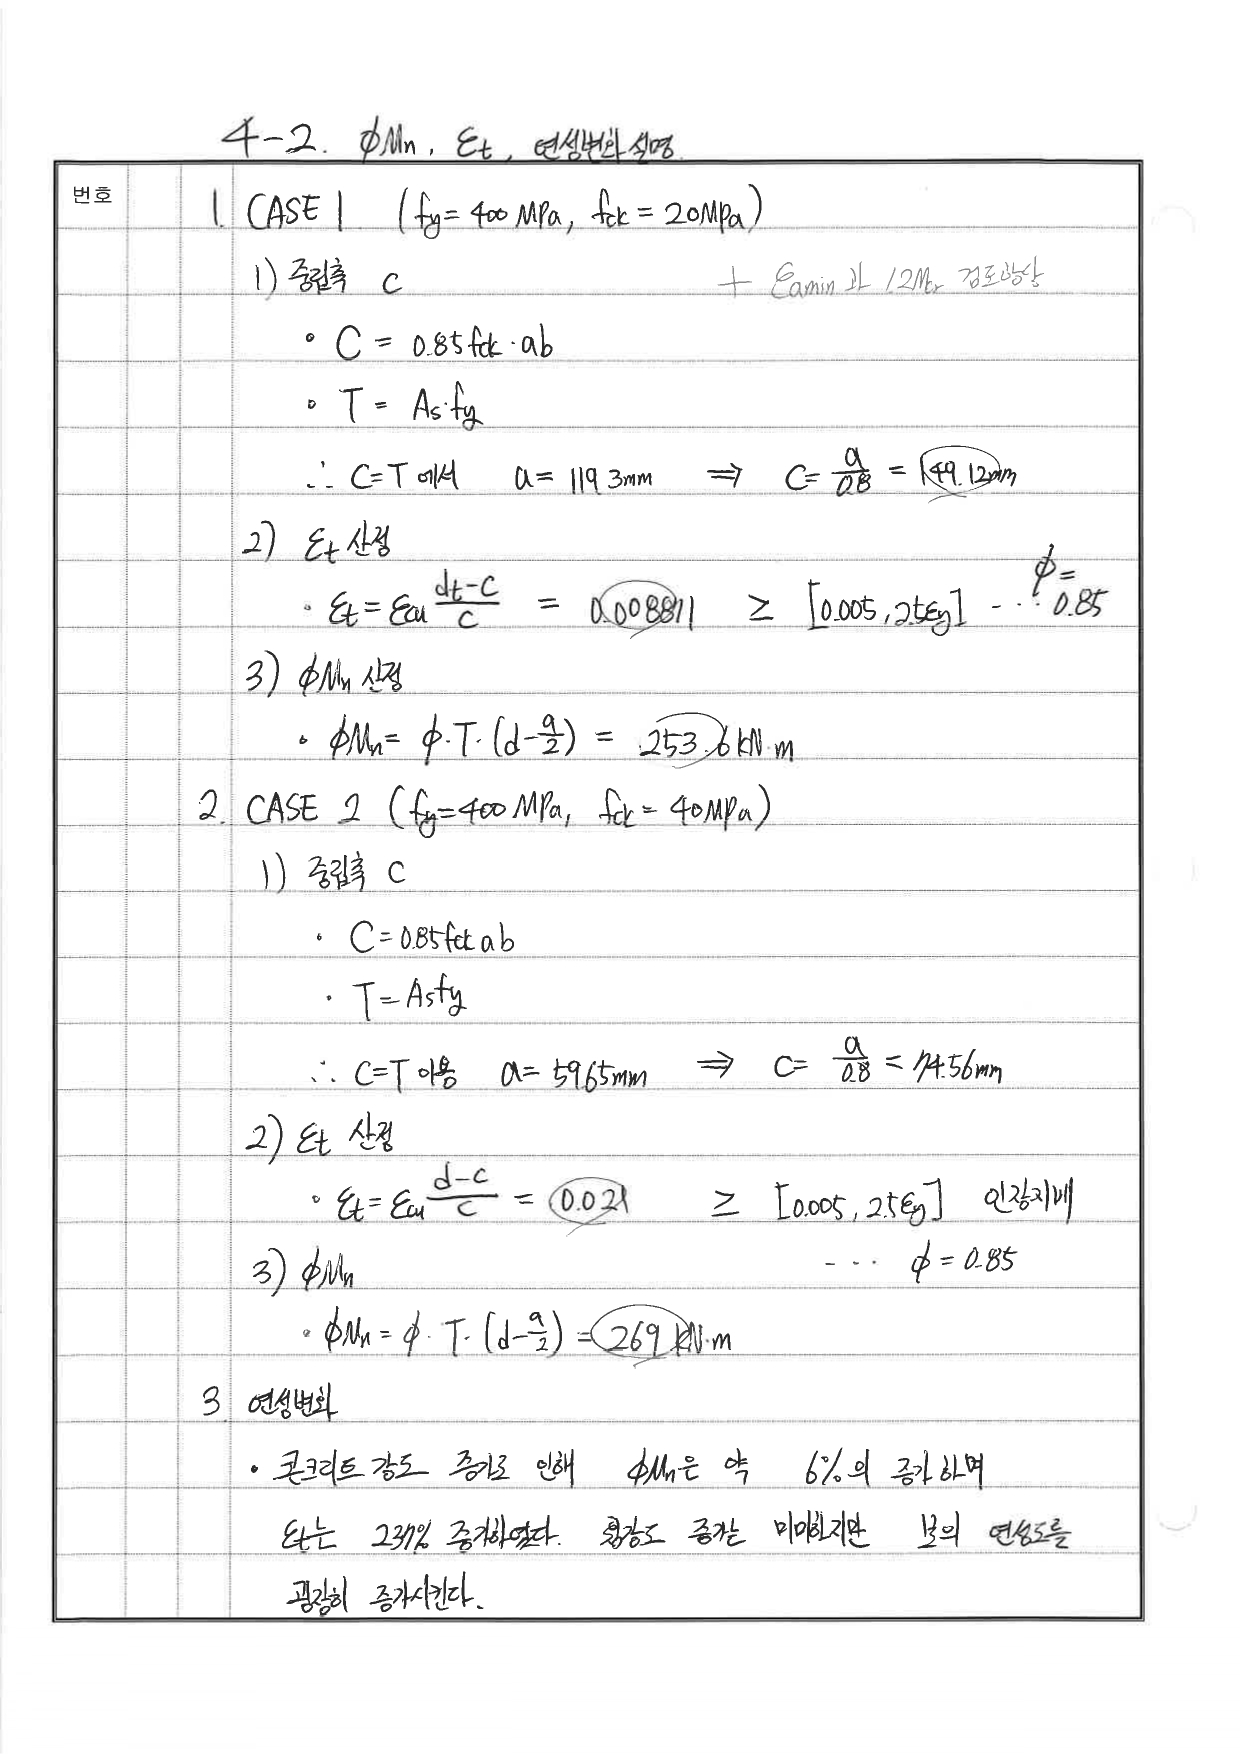 4-2. ϕMn, εt, 연성변화 설명
번호
1. CASE 1 (fy = 400 MPa, fck = 20MPa)
1) 중립축 C
+ εamin과 1.2Mcr 검토
• C = 0.85fck·ab
• T = As·fy
∴ C=T 에서 a = 119.3mm ⇒ C = a/0.8 = 149.12mm
2) εt 산정
• εt = εcu (dt-c)/c = 0.008871 ≥ [0.005, 2.5εy] ... ϕ = 0.85
3) ϕMn 산정
• ϕMn = ϕ·T·(d-a/2) = 253.6 kN·m
2. CASE 2 (fy=400 MPa, fck = 40MPa)
1) 중립축 C
• C = 0.85fck ab
• T = Asfy
∴ C=T 이용 a = 59.65mm ⇒ C = a/0.8 = 74.56mm
2) εt 산정
• εt = εcu (d-c)/c = 0.021 ≥ [0.005, 2.5εy] 인장지배
... ϕ = 0.85
3) ϕMn
• ϕMn = ϕ·T·(d-a/2) = 269 kN·m
3. 연성변화
• 콘크리트 강도 증가로 인해 ϕMn은 약 6%의 증가하며
εt는 237% 증가하였다. 휨강도 증가는 미미하지만 보의 연성도를
굉장히 증가시킨다.